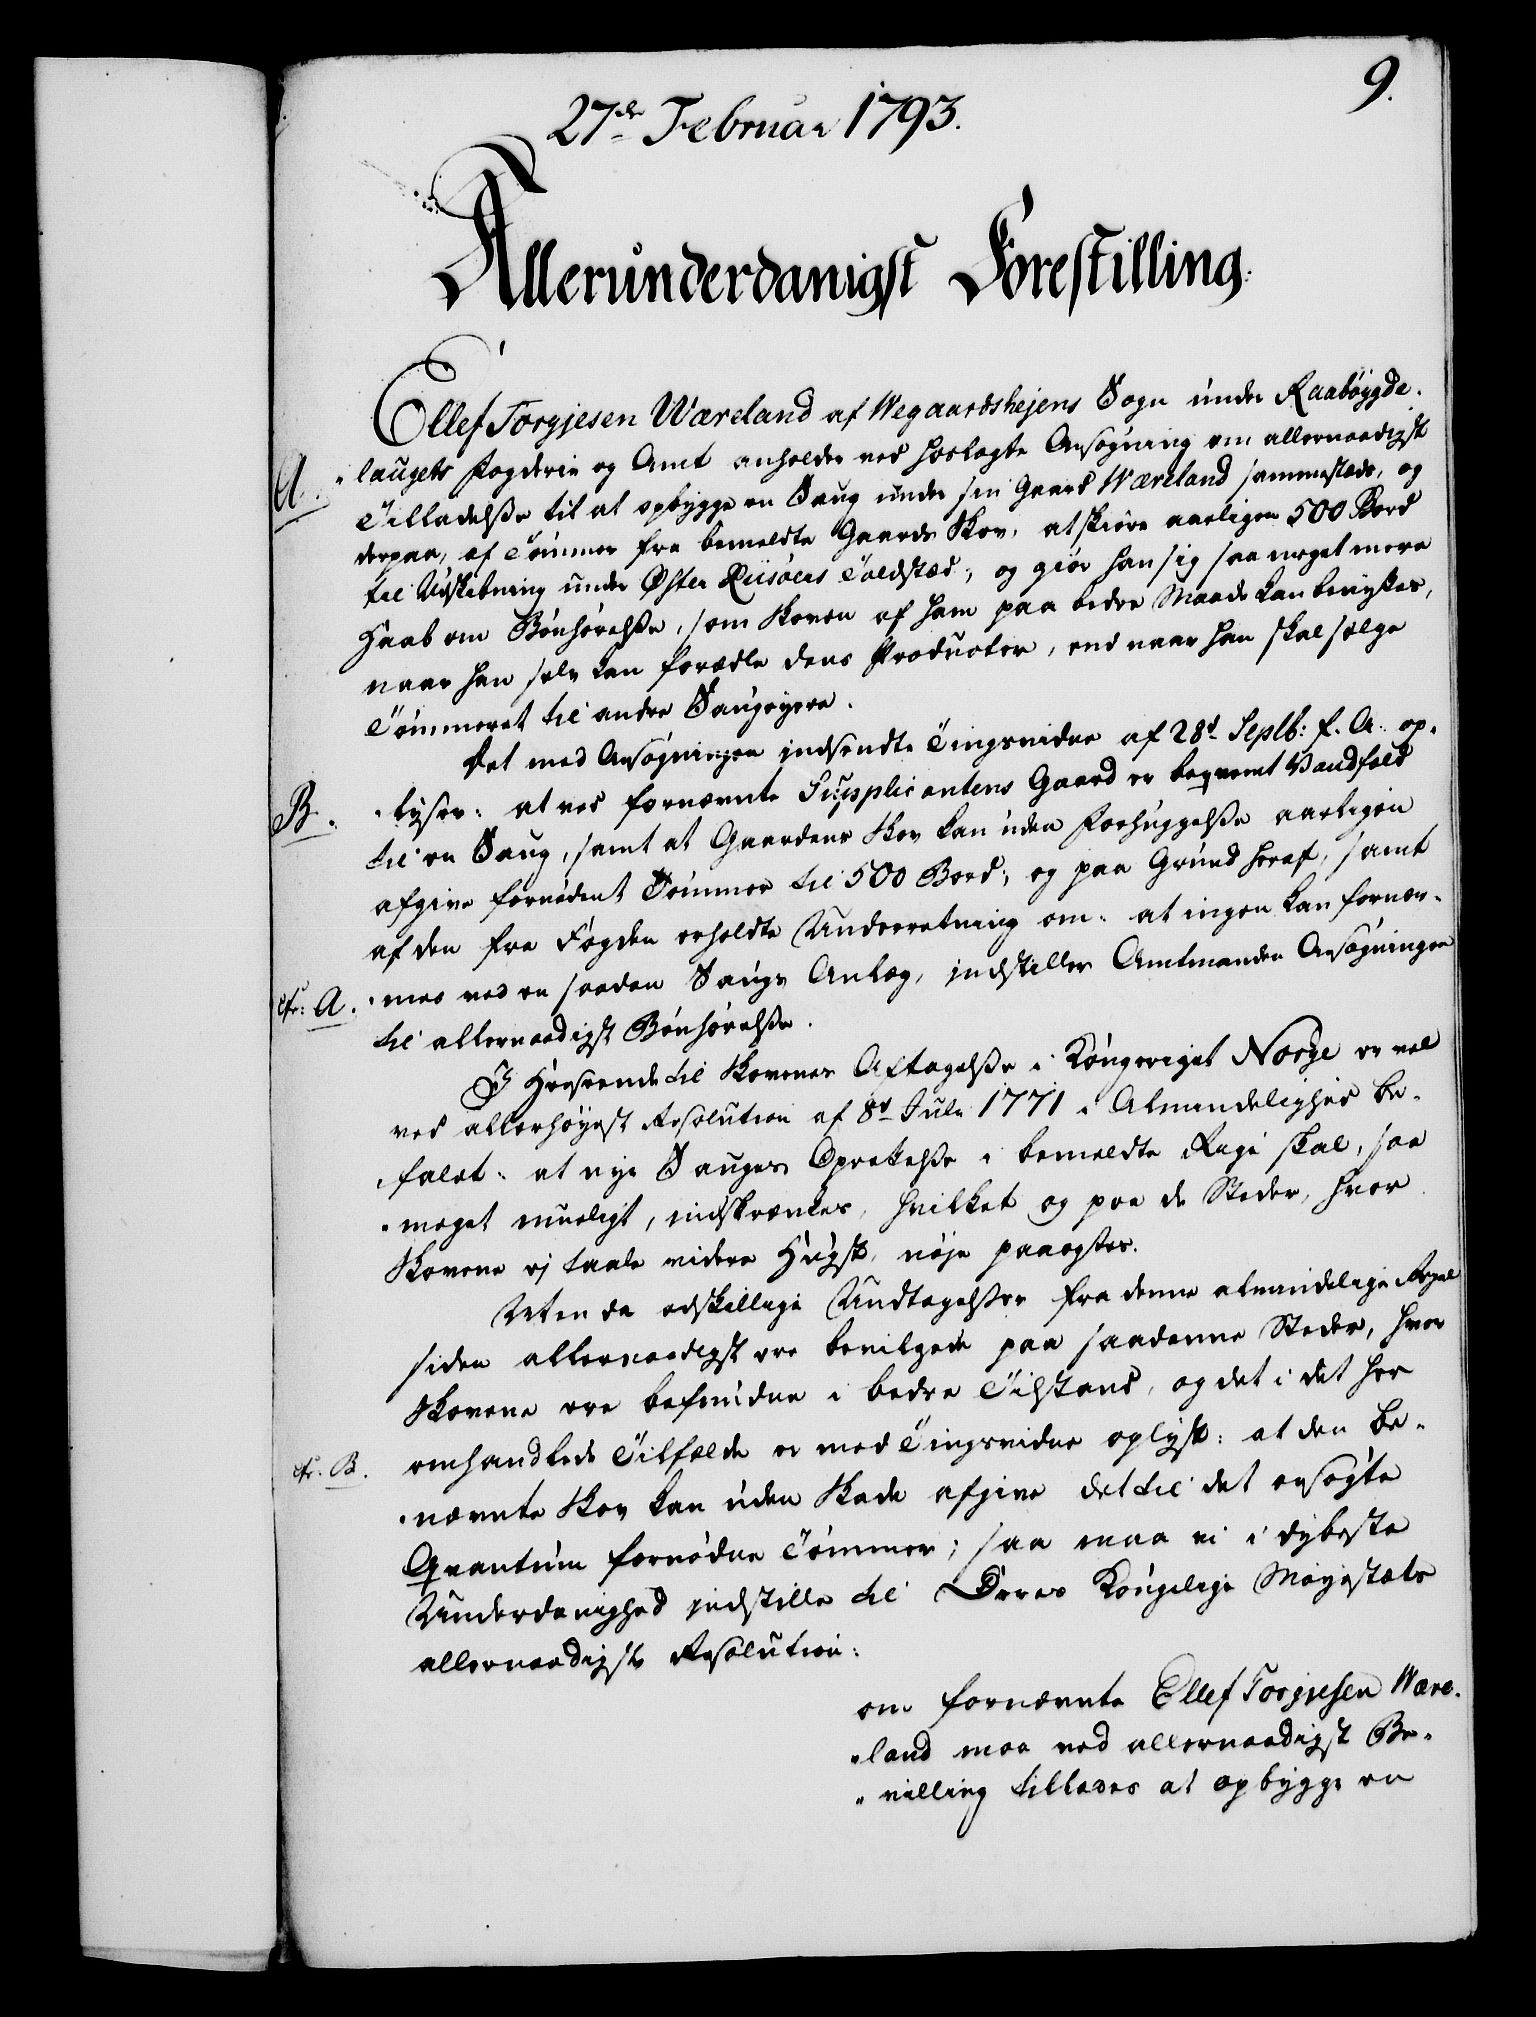 9.
27de Februar 1793.
Allerunderdanigst Forestilling.
Ellef Torgjesen Wæreland af Wegaardshejens Sogn under Raabøygde-
A. laugets Fogderie og Amt anholder ved hoslagte Ansøgning om allernaadigst
Tilladelse til at opbygge en Saug under sin Gaard Wæreland sammestæds, og
derpaa, af Tømmer fra bemeldte Gaards Skov, at skiøre aarligen 500 Bord
til Udskibning under Øster Riisøers Toldstæd; og giør han sig saa meget mere
Haab om Bønhørelse, som Skoven af ham paa bedre Maade kan benyttes,
naar han selv kan forædle dens Producter, end naar han skal sælge
Tømmeret til andre Saugeyere.
Det med Ansøgningen indsendte Tingsvidne af 28d Septb: f. A. op-
B. lyser: at ved fornævnte Supplicantens Gaard er beqvemt Vandfald
til en Saug, samt at Gaardens Skov kan uden Forhuggelse aarligen
afgive fornødent Tømmer til 500 Bord; og paa Grund heraf, samt
af den fra Fogden erholdte Underretning om: at ingen kan fornær-
cfr: A. mes ved en saadan Saugs Anlæg, indstiller Amtmanden Ansøgningen
til allernaadigst Bønhørelse.
I Henseende til Skovenes Aftagelse i Kongeriget Norge er vel
ved allerhøyest Resolution af 8d Julii 1771 i Almindelighed be-
falet: at nye Sauges Oprettelse i bemeldte Rige skal, saa
meget mueligt, indskrænkes, hvilket og paa de Steder, hvor
Skovene ej taale videre Hugst, nøje paaagtes.
Men da adskillige Undtagelser fra denne almindelige Regel
siden allernaadigst ere bevilgede paa saadanne Steder, hvor
Skovene ere befundne i bedre Tilstand, og det i det her
cfr. B. omhandlede Tilfælde er med Tingsvidne oplyst: at den be-
nævnte Skov kan uden Skade afgive det til det ansøgte
Qvantum fornødne Tømmer; saa maa vi i dybeste
Underdanighed indstille til Deres Kongelige Majestæts
allernaadigste Resolution:
om fornævnte Ellef Torgjesen Wære-
land maa ved allernaadigst Be-
villing tillades at opbygge en